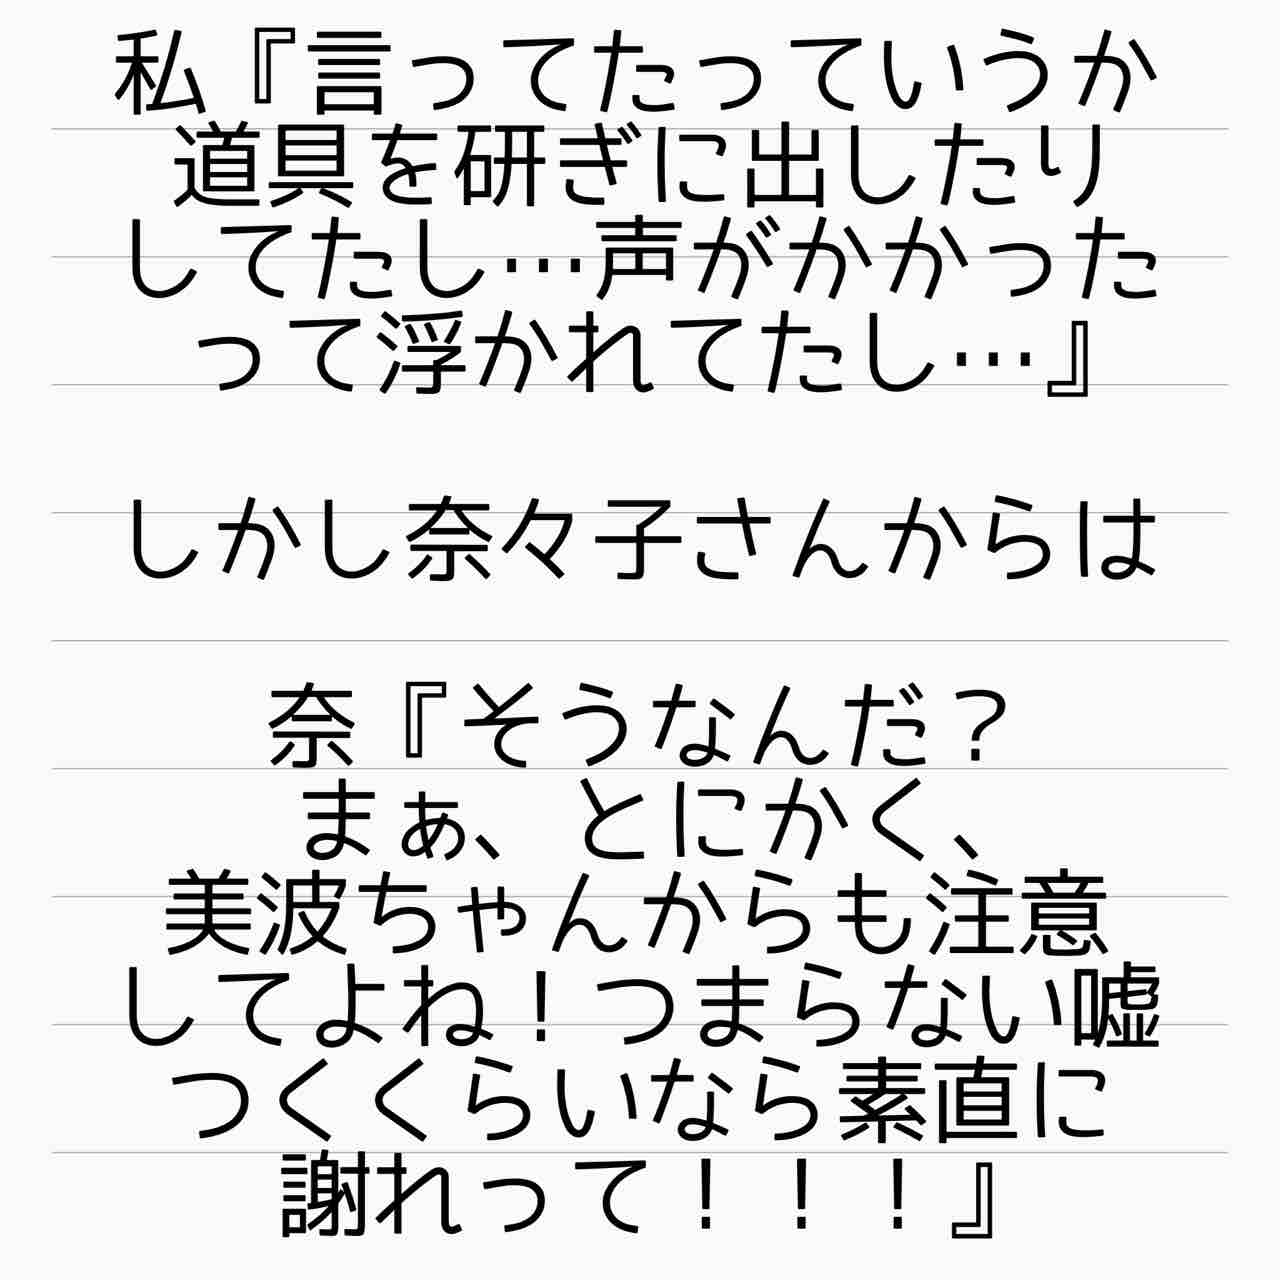 私『言ってたっていうか
道具を研ぎに出したり
してたし…声がかかった
って浮かれてたし…』
しかし奈々子さんからは
奈『そうなんだ？
まぁ、とにかく、
美波ちゃんからも注意
してよね！つまらない嘘
つくくらいなら素直に
謝れって！！！』